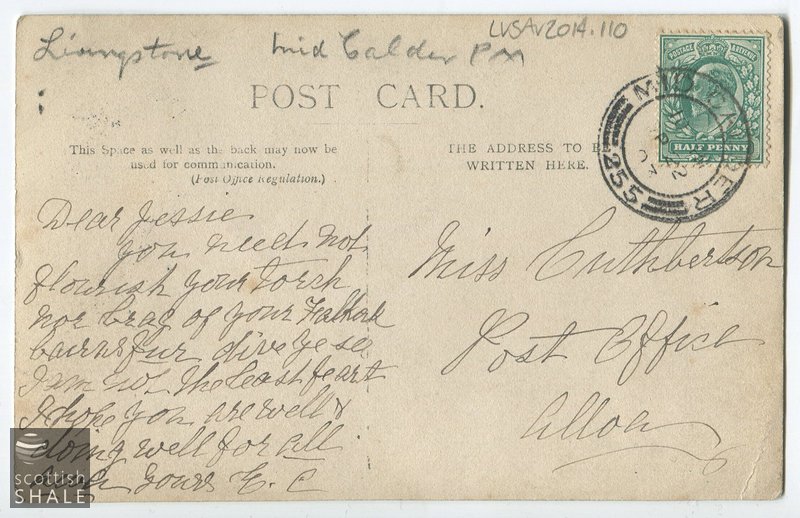 LVSAV2014.110
Livingstone Mid Calder PM
POST CARD.
POSTAGE REVENUE
HALF PENNY
MID CALDER
255
This Space as well as the back may now be
used for communication.
(Post Office Regulation.)
THE ADDRESS TO BE
WRITTEN HERE.
Dear Jessie
you need not
flourish your torch
nor brag of your Falkirk
bairns fur dive ye see
I am not the least feart
I hope you are well &
doing well for all
Yours E. C
Miss Cuthbertson
Post Office
Alloa
scottish
SHALE